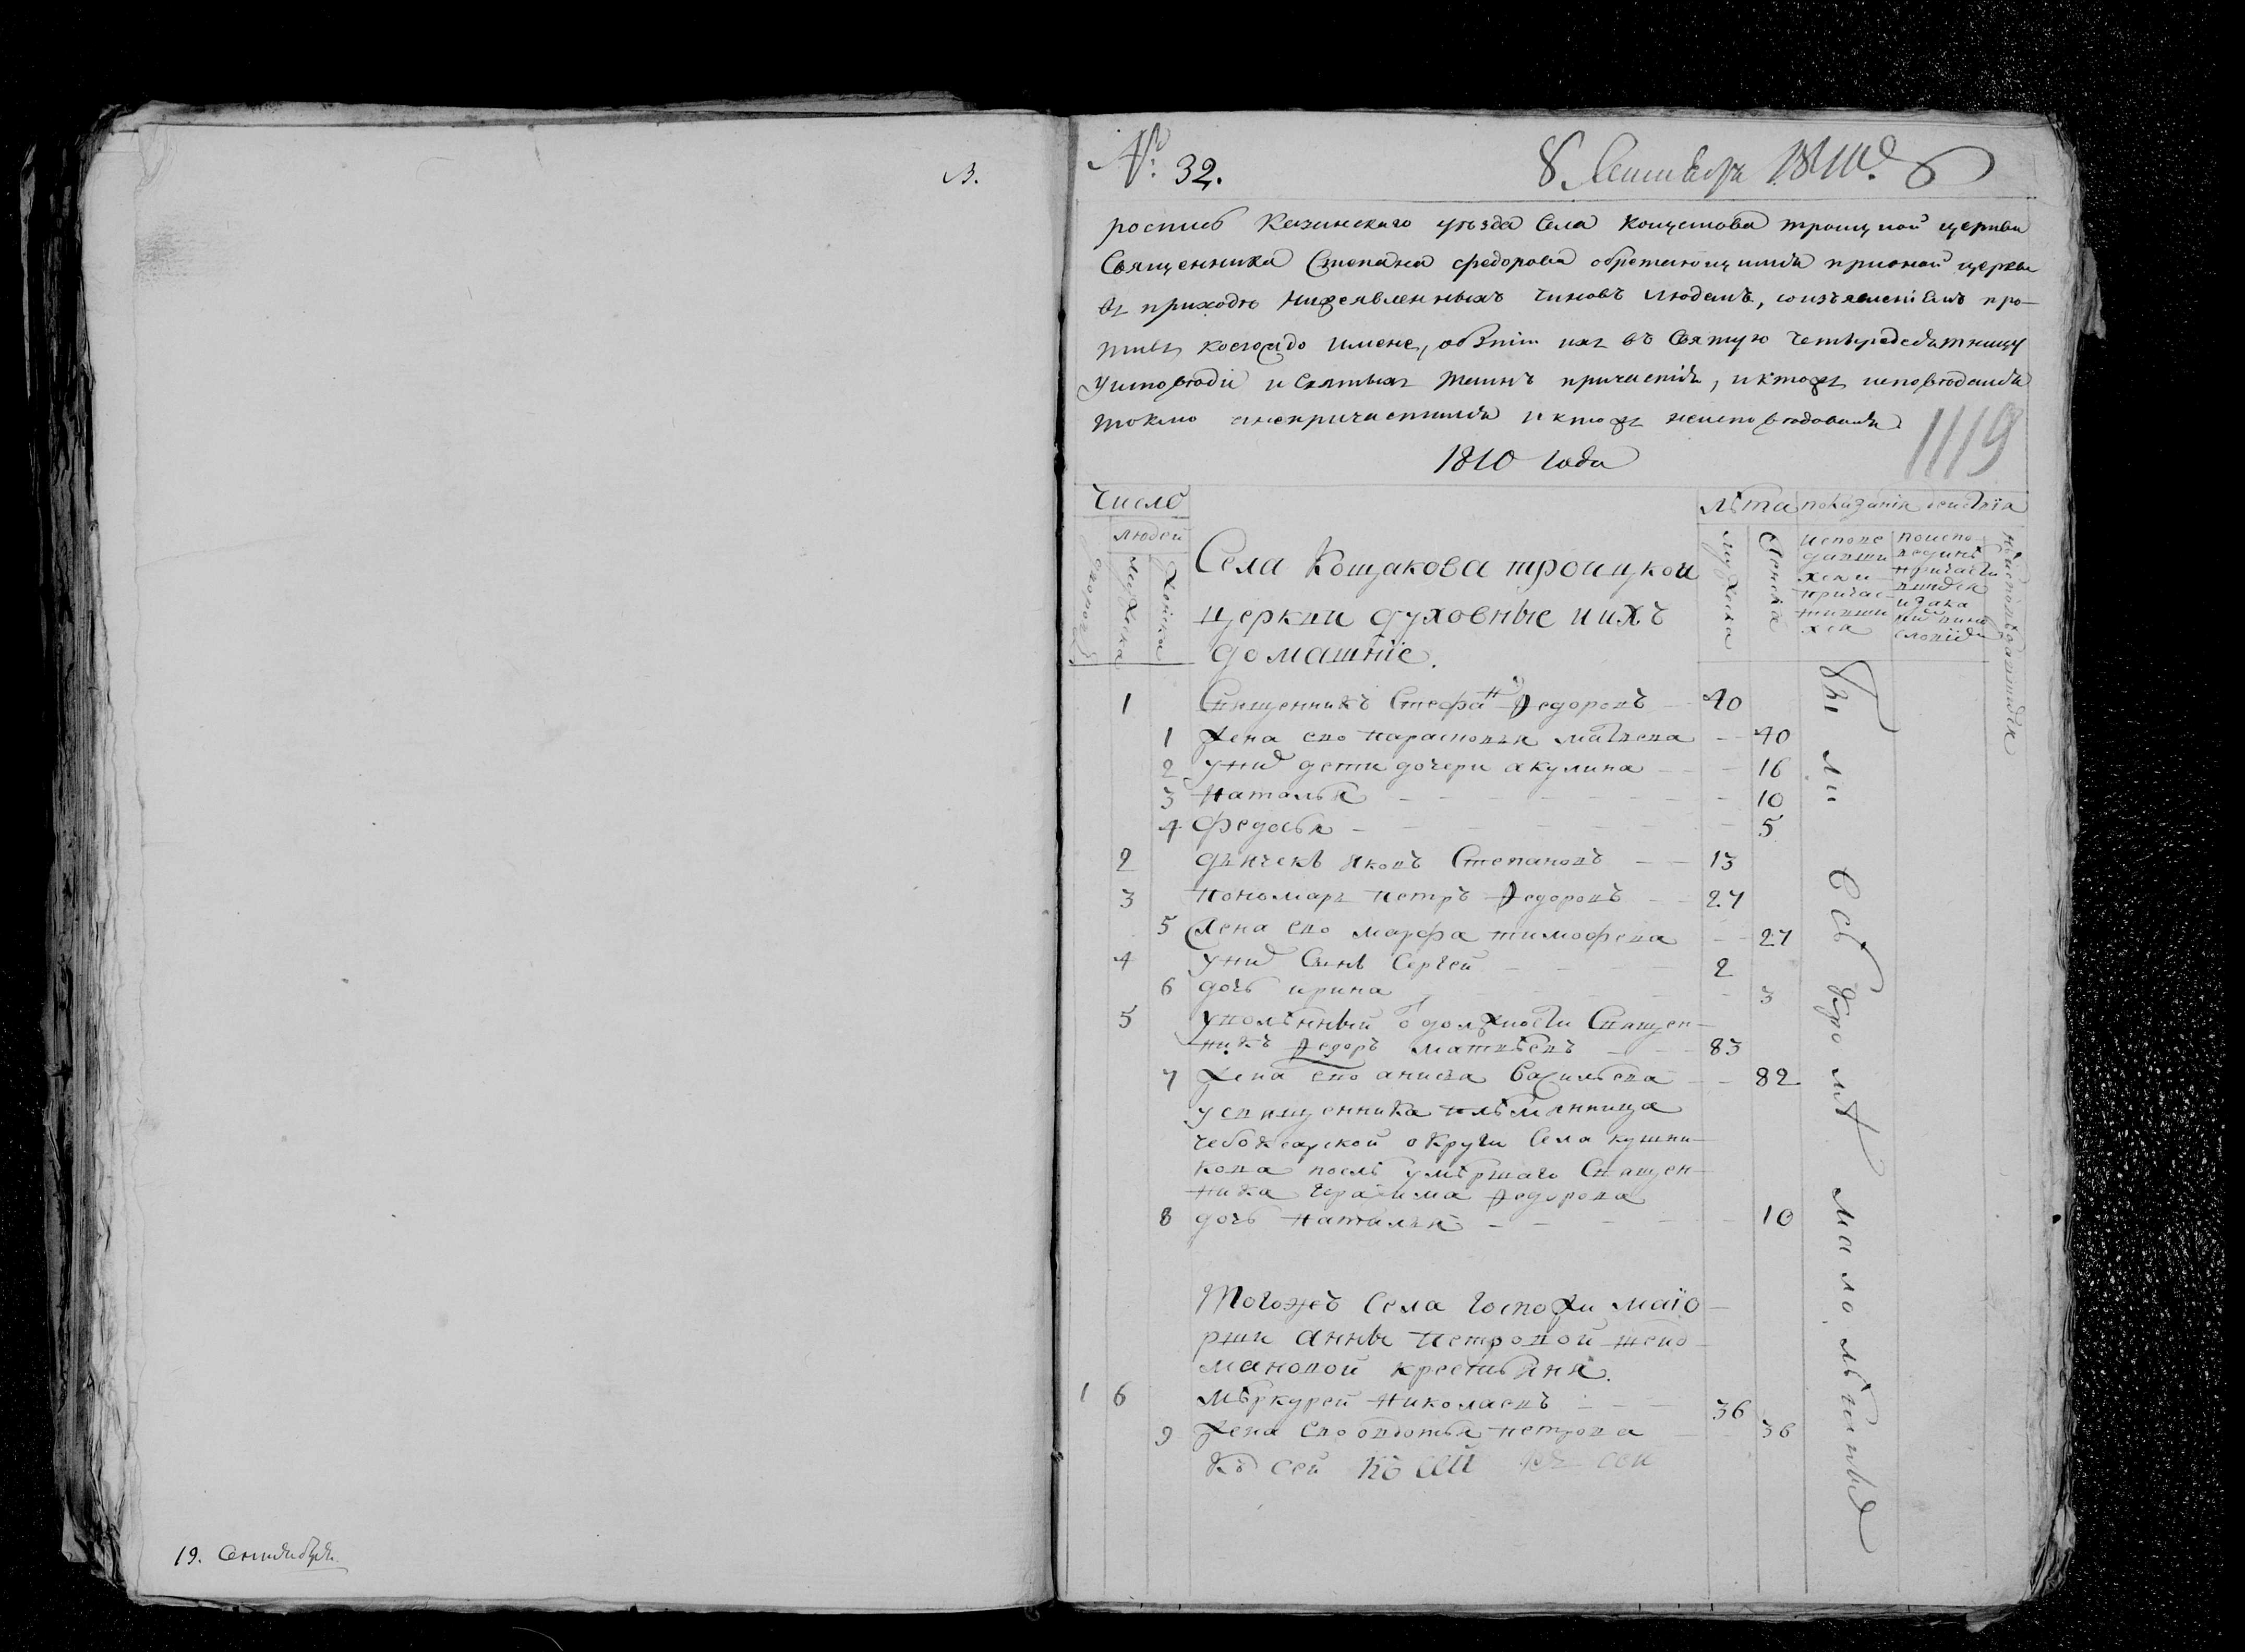 В.
19. Сентября.
№: 32.
8. Сентября 1810.
роспись Казинскаго уѣзда Села Кощакова троицкой церкви
Священника Степана федорова обретающимся прионой церкви
въ приходѣ нижеявленныхъ чиновъ людемъ, соизъявленіемъ про-
тивъ коегождо имене, обытіи ихъ въ Святую Четыредесятницу
уисповѣди и Святыхъ Таинъ причастія, иктожъ исповѣдался
токмо анепричастился иктожъ неисповѣдовался
1119
1810 года
Число
лѣта показанія бытія
людей
дворовъ
мужеска
женска
Села Кощакова троицкой
церкви духовные иихъ
домашніе.
мужеска
женска
исповѣ
давши
хся и
причас
тивши
хся
1 Священникъ Стефанъ Федоровъ 40
1 жена ево парасковья матвеева 40
2 унихъ дети дочери акулина 16
3 Наталья 10
4 федосья 5
2 дьячекъ яковъ Степановъ 13
3 пономарь петръ Федоровъ 27
5 жена ево марфа тимофеева 27
4 унихъ Сынъ Сергей 2
6 дочь ирина 3
5 уволѣнный о должности Священ-
никъ Федоръ матвѣевъ 83
7 жена ево анисья Васильева 82
усвященника плѣмянница
чебоксарской округи Села кушни-
кова послѣ умѣршаго Священ-
ника герасима Федорова
8 дочь Наталья 10
Тогожъ Села Госпожи маіо-
рши анны петровой
мановой крестьяня.
1 6 мѣркурей Николаевъ 36
9 жена ево овдотья петрова 36
Къ сей Къ сей Къ сей
были Всѣ кромѣ малолѣтныхъ